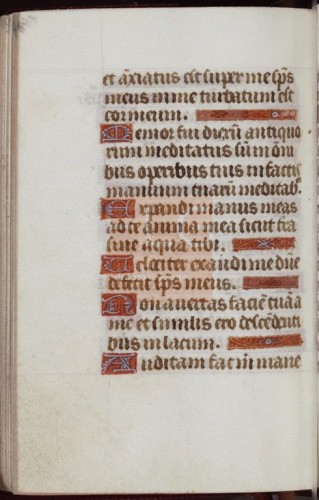 et āxiatus est super me sp̄s
meus in me turbatum est
cor meum.
Memor fui dierū antiquo
rum meditatus sūm ōni
bus operibus tuis in factis
manuum tuarū meditab.
Expandi manus meas
ad te anima mea sicut tra
sine aqua tibi.
Velociter exaudi me dn̄e
defecit sp̄s meus.
Non avertas faciē tuā a
me et similis ero descēdenti
bus in lacum.
Auditam fac m̄ mane